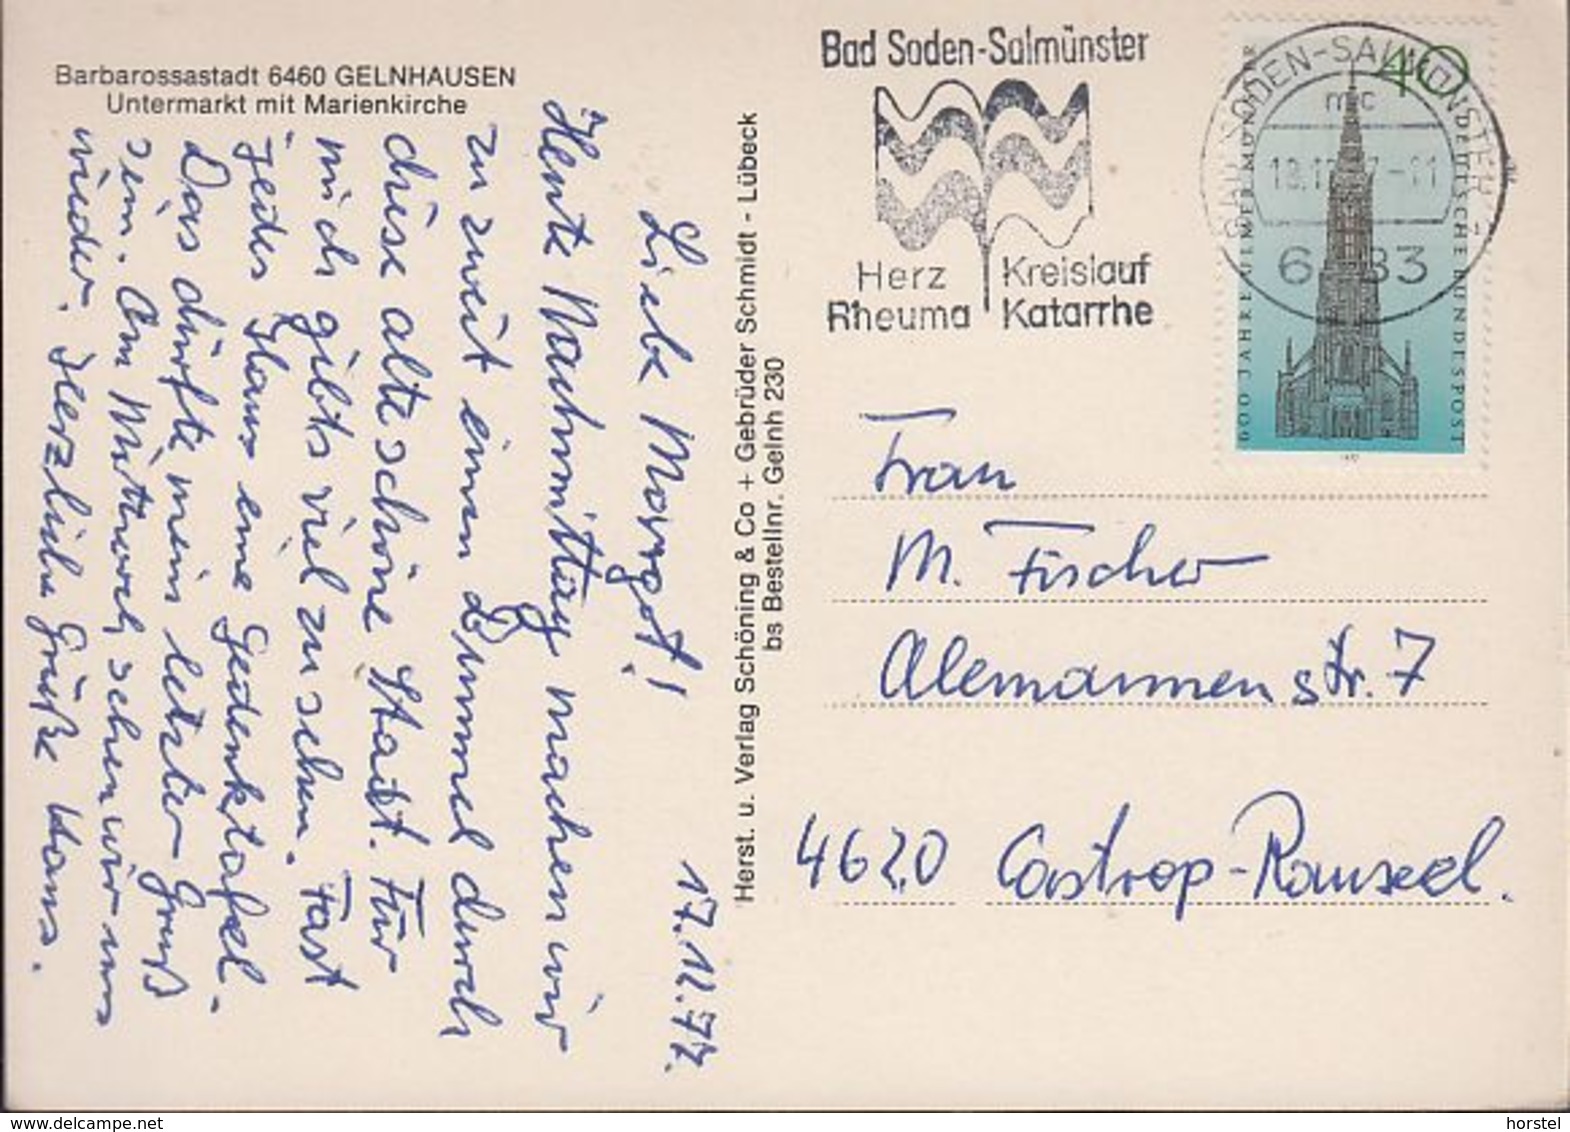 Barbarossastadt 6460 GELNHAUSEN
Untermarkt mit Marienkirche
17.11.77.
Liebe Margot!
Heute Nachmittag machen wir
zu zweit einen Bummel durch
diese alte schöne Stadt. Für
mich gibts viel zu sehen. Fast
jedes Haus eine Gedenktafel.
Das dürfte mein letzter Gruß
sein. Am Mittwoch sehen wir uns
wieder. Herzliche Grüße Hans.
Herst. u. Verlag Schöning & Co + Gebrüder Schmidt - Lübeck
bs Bestellnr. Gelnh 230
Bad Soden-Salmünster
Herz Kreislauf
Rheuma Katarrhe
BAD SODEN-SALMÜNSTER 1
mc
-11
40
600 JAHRE ULMER MÜNSTER
DEUTSCHE BUNDESPOST
Frau
M. Fischer
Alemannenstr. 7
4620 Castrop-Rauxel.
www.delcampe.net
horstel